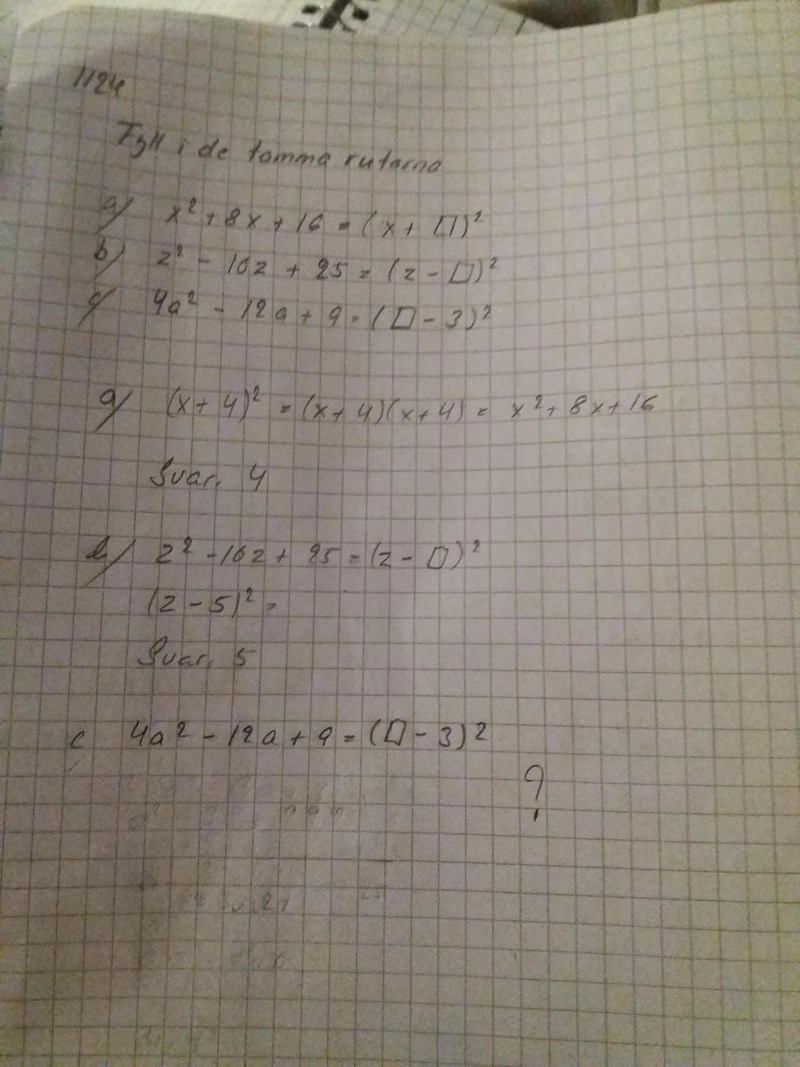 1124
Fyll i de tomma rutarna
a) x² + 8x + 16 = (x + □)²
b) z² - 10z + 25 = (z - □)²
c) 4a² - 12a + 9 = (□ - 3)²
a) (x + 4)² = (x + 4)(x + 4) = x² + 8x + 16
Svar. 4
b) z² - 10z + 25 = (z - □)²
(z - 5)² =
Svar. 5
c 4a² - 12a + 9 = (□ - 3)²
?